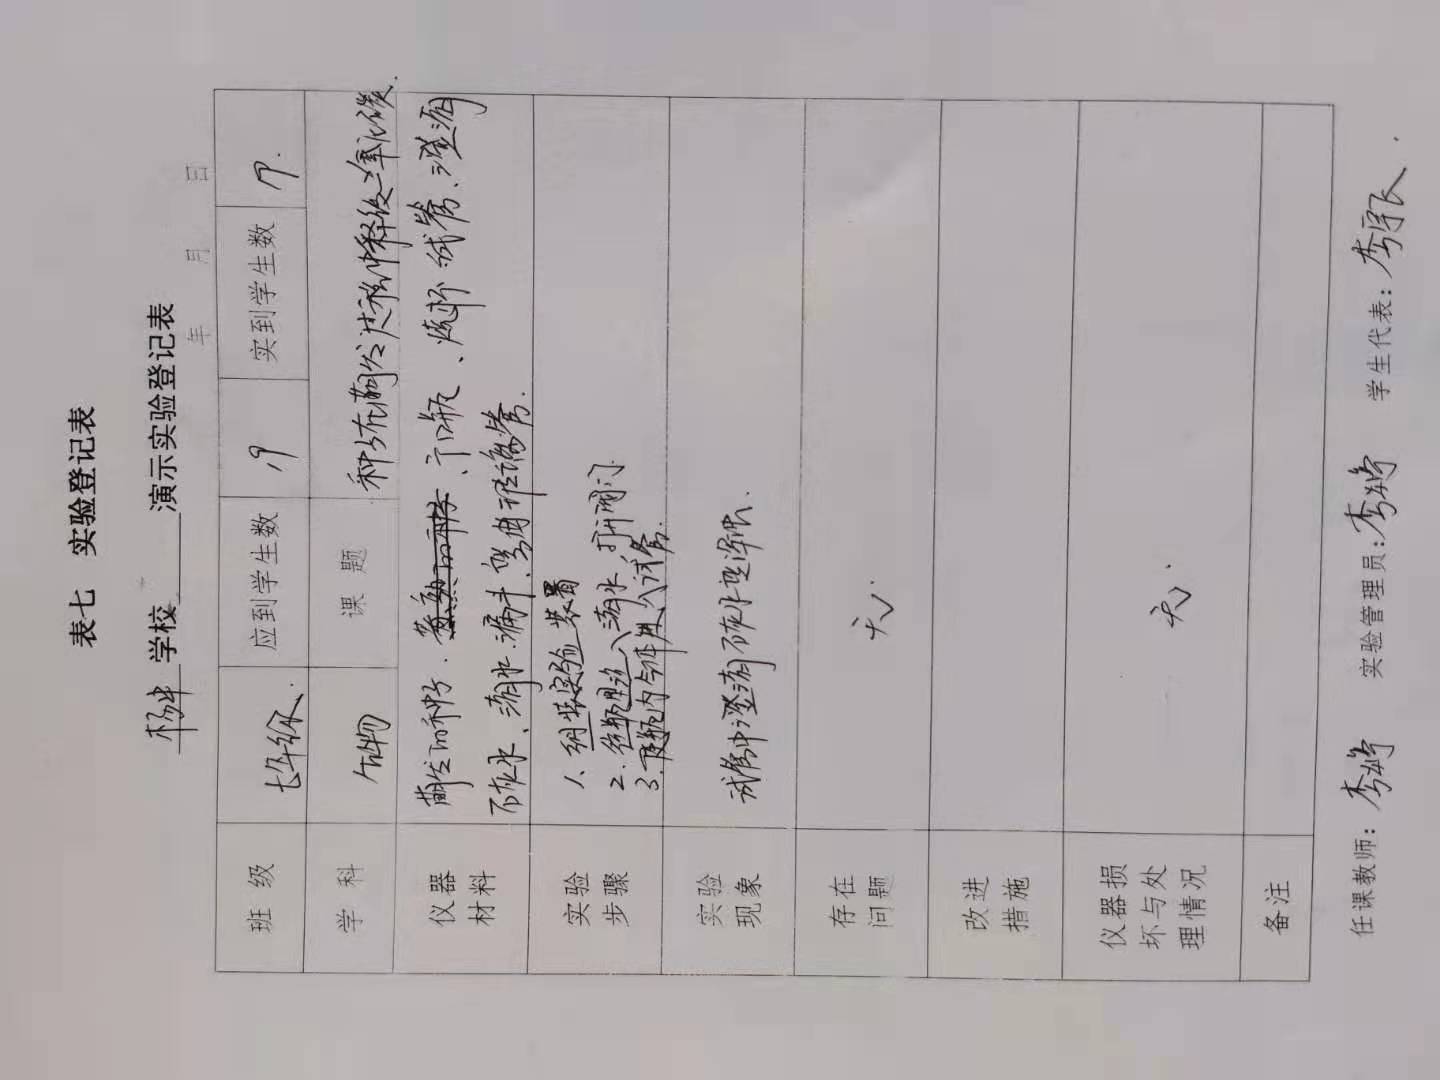 表七 实验登记表
杨中学校 演示实验登记表
年 月 日
班 级 七年级 应到学生数 19 实到学生数 19
学 科 生物 课 题 种子在萌发过程中释放二氧化碳
仪器材料 萌发的种子、广口瓶、烧杯、试管、澄清
石灰水、清水、漏斗、弯曲玻璃管.
实验步骤 1. 组装实验装置
2. 往瓶里注入清水,打开阀门
3. 使瓶内气体进入试管.
实验现象 试管中澄清石灰水变浑浊.
存在问题 无.
改进措施
仪器损坏与处理情况 无.
备注
任课教师:李婷 实验管理员:李婷 学生代表:李